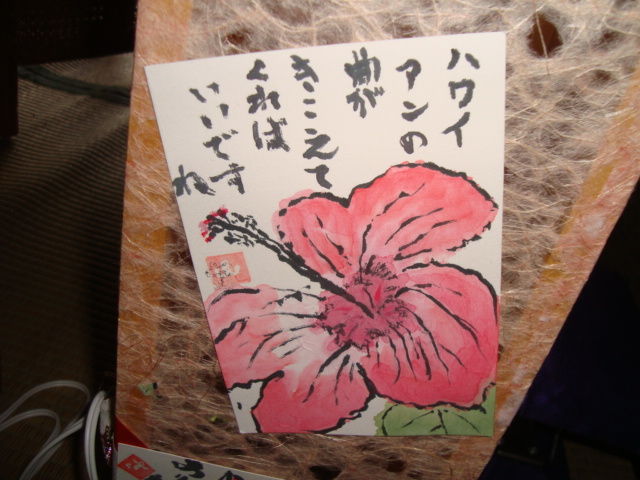 ハワイ
アンの
曲が
きこえて
くれば
いいです
ね